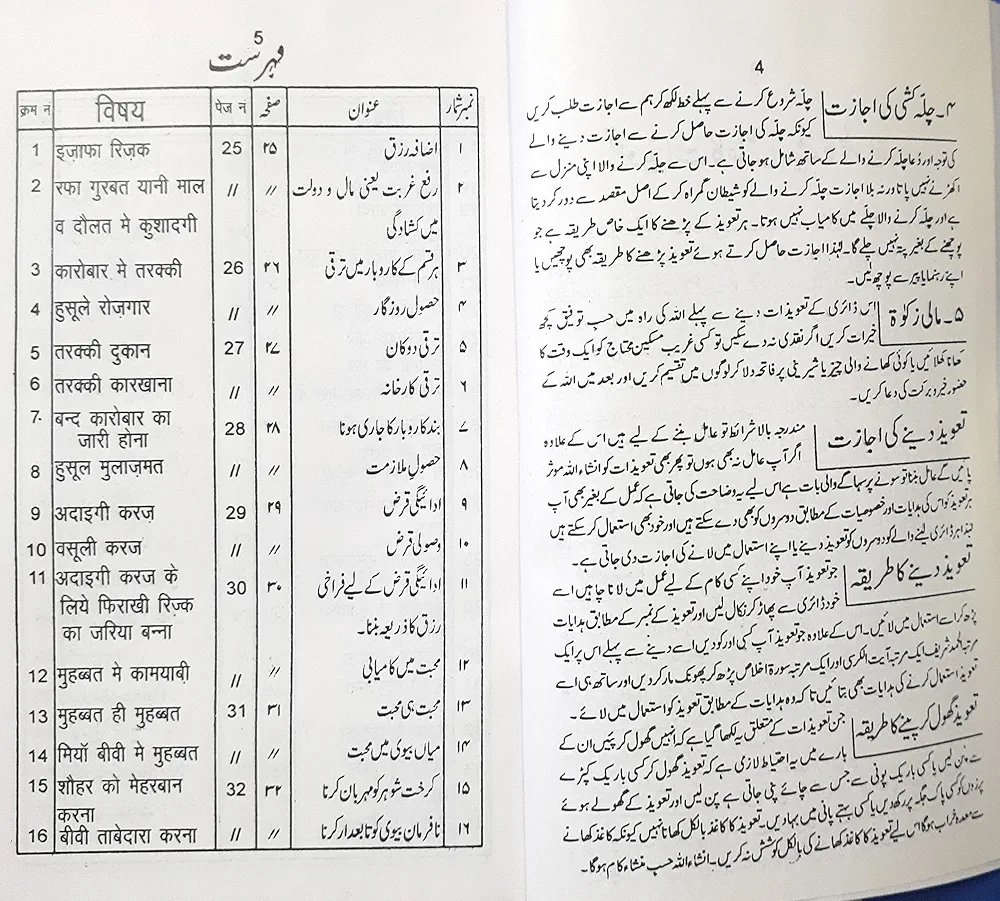 4
۴۔ چلّہ کشی کی اجازت
چلّہ شروع کرنے سے پہلے خط لکھ کر ہم سے اجازت طلب کریں
کیونکہ چلّہ کی اجازت حاصل کرنے سے اجازت دینے والے
کی توجہ اور دُعا چلّہ کرنے والے کے ساتھ شامل ہو جاتی ہے۔ اس سے چلّہ کرنے والا اپنی منزل سے
اکھڑنے نہیں پاتا ورنہ بلا اجازت چلّہ کرنے والے کو شیطان گمراہ کر کے اصل مقصد سے دور کر دیتا
ہے اور چلّہ کرنے والا چلّے میں کامیاب نہیں ہوتا۔ ہر تعویذ کے پڑھنے کا ایک خاص طریقہ ہے جو
پوچھنے کے بغیر پتہ نہیں چلے گا۔ لہٰذا اجازت حاصل کرتے ہوئے تعویذ پڑھنے کا طریقہ بھی پوچھیں یا
اپنے رہنما یا پیر سے پوچھ لیں۔
۵۔ مالی زکوٰۃ
اس ڈائری کے تعویذات دینے سے پہلے اللہ کی راہ میں حسب توفیق کچھ
خیرات کریں اگر نقدی نہ دے سکیں تو کسی غریب مسکین محتاج کو ایک وقت کا
کھانا کھلائیں یا کوئی کھانے والی چیز یا شیرینی پر فاتحہ دلا کر لوگوں میں تقسیم کریں اور بعد میں اللہ کے
حضور خیر و برکت کی دعا کریں۔
تعویذ دینے کی اجازت
مندرجہ بالا شرائط تو عامل بننے کے لیے ہیں اس کے علاوہ
اگر آپ عامل نہ بھی ہوں تو پھر بھی تعویذات کو انشاء اللہ موثر
پائیں گے عامل بننا تو سونے پر سہاگے والی بات ہے اس لیے یہ وضاحت کی جاتی ہے کہ عمل کے بغیر بھی آپ
ہر تعویذ کو اس کی ہدایات اور خصوصیات کے مطابق دوسروں کو بھی دے سکتے ہیں اور خود بھی استعمال کر سکتے ہیں
لہٰذا ہر ڈائری لینے والے کو دوسروں کو تعویذ دینے یا اپنے استعمال میں لانے کی اجازت دی جاتی ہے۔
تعویذ دینے کا طریقہ
جو تعویذ آپ خود اپنے کسی کام کے لیے عمل میں لانا چاہیں اسے
خود ڈائری سے پھاڑ کر نکال لیں اور تعویذ کے نمبر کے مطابق ہدایات
پڑھ کر اسے استعمال میں لائیں۔ اس کے علاوہ جو تعویذ آپ کسی اور کو دیں اسے دینے سے پہلے اس پر ایک
مرتبہ الحمد شریف ایک مرتبہ آیت الکرسی اور ایک مرتبہ سورۃ اخلاص پڑھ کر پھونک مار کر دیں اور ساتھ ہی اسے
تعویذ استعمال کرنے کی ہدایات بھی بتائیں تاکہ وہ ہدایات کے مطابق تعویذ کو استعمال میں لائے۔
تعویذ گھول کر پینے کا طریقہ
جن تعویذات کے متعلق یہ لکھا گیا ہے کہ انہیں گھول کر پئیں ان کے
بارے میں یہ احتیاط لازمی ہے کہ تعویذ گھول کر کسی باریک کپڑے
سے پن لیں یا کسی باریک پونی سے جس سے چائے پنی جاتی ہے پن لیں اور تعویذ کے گھولے ہوئے
پرزوں کو کسی پاک جگہ پر رکھ دیں یا کسی بہتے پانی میں بہا دیں۔ تعویذ کا کاغذ بالکل کھانا نہیں کیونکہ کاغذ کھانے
سے معدہ خراب ہوگا اس لیے تعویذ کا کاغذ کھانے کی بالکل کوشش نہ کریں۔ انشاء اللہ حسب منشاء کام ہوگا۔
5
فہرست
क्रम न विषय पेज नं صفحہ عنوان نمبر شمار
1 इज़ाफा रिज़क 25 ۲۵ اضافہ رزق ۱
2 रफा गुरबत यानी माल // // رفع غربت یعنی مال و دولت ۲
व दौलत मे कुशादगी میں کشادگی
3 कारोबार मे तरक्की 26 ۲۶ ہر قسم کے کاروبار میں ترقی ۳
4 हुसूले रोज़गार // // حصول روزگار ۴
5 तरक्की दुकान 27 ۲۷ ترقی دوکان ۵
6 तरक्की कारखाना // // ترقی کارخانہ ۶
7 बन्द कारोबार का
जारी होना 28 ۲۸ بند کاروبار کا جاری ہونا ۷
8 हुसूल मुलाज़मत // // حصولِ ملازمت ۸
9 अदाइगी करज़ 29 ۲۹ ادائیگی قرض ۹
10 वसूली करज // // وصولی قرض ۱۰
11 अदाइगी करज के 30 ۳۰ ادائیگی قرض کے لیے فراخی ۱۱
लिये फिराखी रिज़्क رزق کا ذریعہ بننا۔
का जरिया बन्ना
12 मुहब्बत मे कामयाबी // // محبت میں کامیابی ۱۲
13 मुहब्बत ही मुहब्बत 31 ۳۱ محبت ہی محبت ۱۳
14 मियॉ बीवी मे मुहब्बत // // میاں بیوی میں محبت ۱۴
15 शौहर को मेहरबान 32 ۳۲ کرخت شوہر کو مہربان کرنا ۱۵
करना
16 बीवी ताबेदारा करना // // نافرمان بیوی کو تابعدار کرنا ۱۶